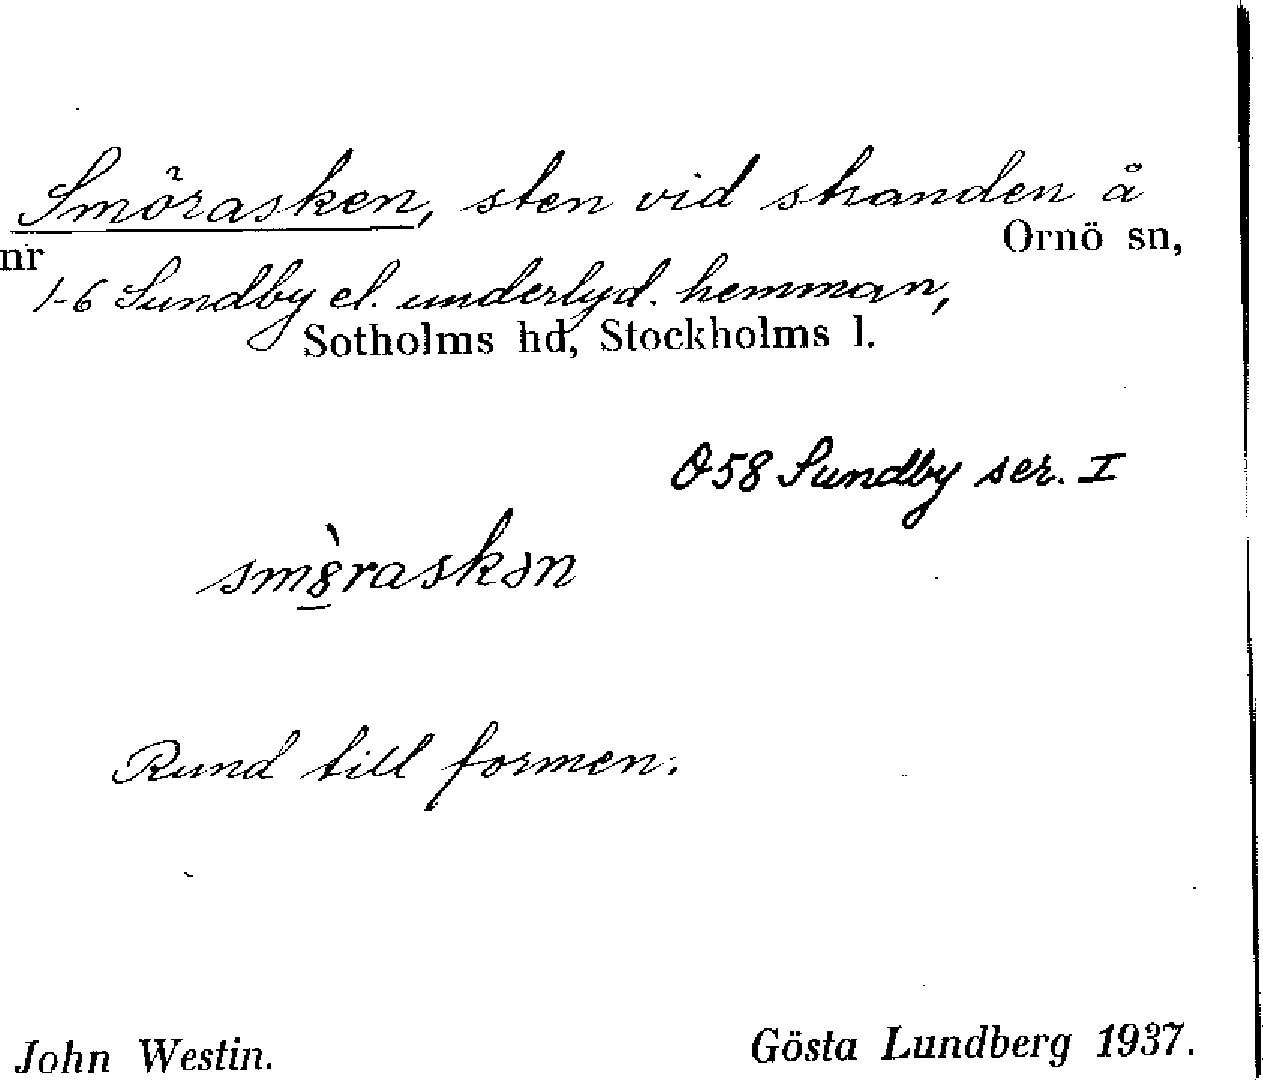 Smörasken, sten vid stranden å
Ornö sn,
nr
1-6 Sundby el. underlyd. hemman,
Sotholms hd, Stockholms l.
Ö58 Sundby ser. I
sm8̀raskən
Rund till formen.
John Westin.
Gösta Lundberg 1937.